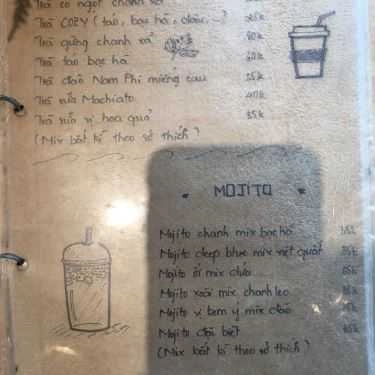 Trà cỏ ngọt chanh xả
Trà COZY (táo, bạc hà, dâu, ...)
Trà gừng chanh xả
Trà táo bạc hà
Trà đào Nam Phi miếng cau 35k
Trà sữa Machiato 40k
Trà sữa vị hoa quả 35k
(Mix bất kì theo sở thích)
MOJITO
Mojito chanh mix bạc hà
Mojito deep blue mix việt quất
Mojito ổi mix dưa
Mojito xoài mix chanh leo
Mojito vị tem ý mix đào
Mojito đặc biệt
(Mix bất kì theo sở thích)